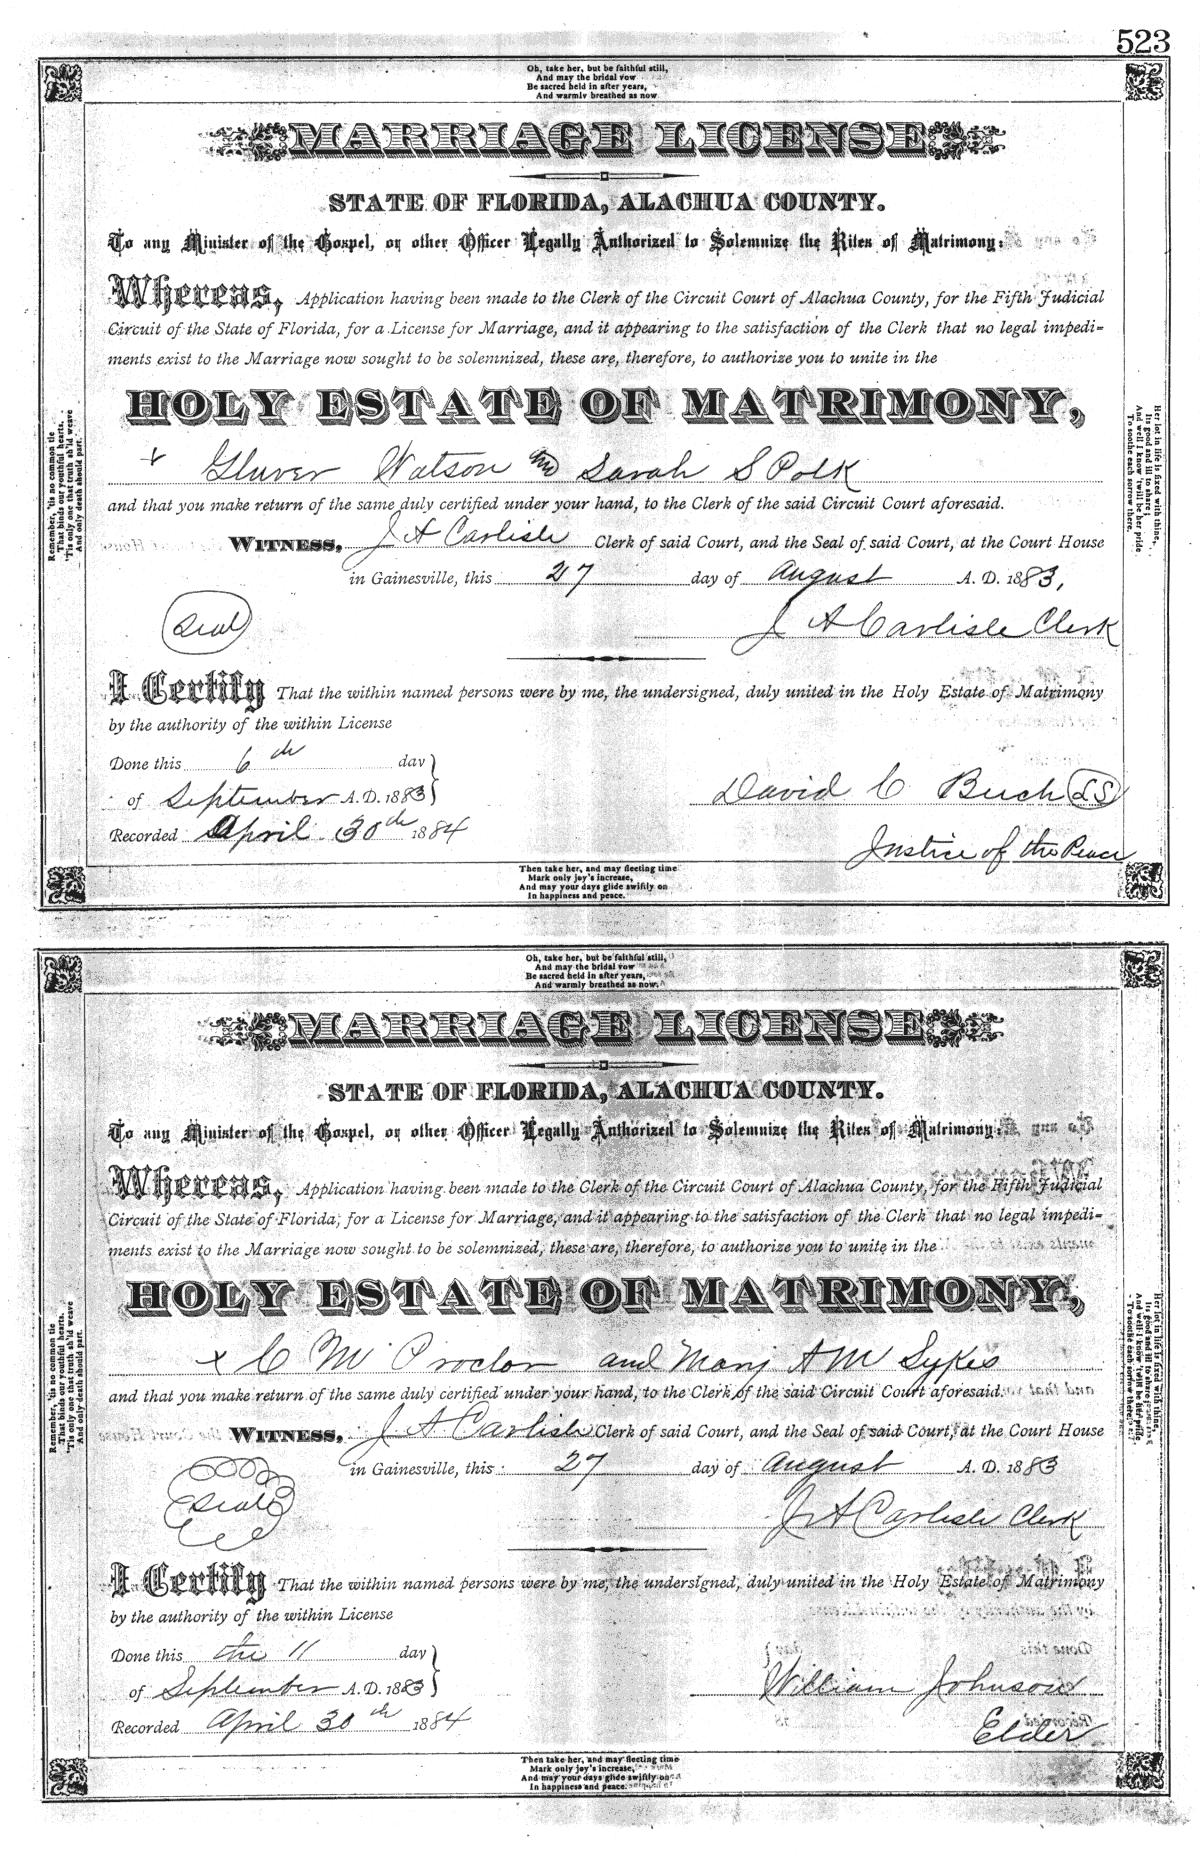 523
Oh, take her, but be faithful still,
And may the bridal vow
Be sacred held in after years,
And warmly breathed as now
MARRIAGE LICENSE
STATE OF FLORIDA, ALACHUA COUNTY.
To any Minister of the Gospel, or other Officer Legally Authorized to Solemnize the Rites of Matrimony:
Whereas, Application having been made to the Clerk of the Circuit Court of Alachua County, for the Fifth Judicial
Circuit of the State of Florida, for a License for Marriage, and it appearing to the satisfaction of the Clerk that no legal impedi-
ments exist to the Marriage now sought to be solemnized, these are, therefore, to authorize you to unite in the
HOLY ESTATE OF MATRIMONY,
Remember, 'tis no common tie
That binds our youthful hearts,
'Tis only one that truth sh'ld weave
And only death should part.
Her lot in life is fixed with thine,
Its good and ill to share;
And well I know 'twill be her pride
To soothe each sorrow there.
x Gluver Watson and Sarah S Polk
and that you make return of the same duly certified under your hand, to the Clerk of the said Circuit Court aforesaid.
WITNESS, J A Carlisle Clerk of said Court, and the Seal of said Court, at the Court House
in Gainesville, this 27 day of August A. D. 1883,
Seal
J A Carlisle Clerk
I Certify That the within named persons were by me, the undersigned, duly united in the Holy Estate of Matrimony
by the authority of the within License
Done this 6th day
of September A.D. 1883
David C Buch LS
Recorded April 30th 1884
Justice of the Peace
Then take her, and may fleeting time
Mark only joy's increase,
And may your days glide swiftly on
In happiness and peace.
Oh, take her, but be faithful still,
And may the bridal vow
Be sacred held in after years,
And warmly breathed as now.
MARRIAGE LICENSE
STATE OF FLORIDA, ALACHUA COUNTY.
To any Minister of the Gospel, or other Officer Legally Authorized to Solemnize the Rites of Matrimony:
Whereas, Application having been made to the Clerk of the Circuit Court of Alachua County, for the Fifth Judicial
Circuit of the State of Florida, for a License for Marriage, and it appearing to the satisfaction of the Clerk that no legal impedi-
ments exist to the Marriage now sought to be solemnized, these are, therefore, to authorize you to unite in the
HOLY ESTATE OF MATRIMONY,
Remember, 'tis no common tie
That binds our youthful hearts.
'Tis only one that truth sh'ld weave
And only death should part.
Her lot in life is fixed with thine,
Its good and ill to share;
And well I know 'twill be her pride
To soothe each sorrow there.
x C M Proctor and Mary A M Sykes
and that you make return of the same duly certified under your hand, to the Clerk of the said Circuit Court aforesaid.
WITNESS, J A Carlisle Clerk of said Court, and the Seal of said Court, at the Court House
in Gainesville, this 27 day of August A. D. 1883
Seal
J A Carlisle Clerk
I Certify That the within named persons were by me, the undersigned, duly united in the Holy Estate of Matrimony
by the authority of the within License
Done this the 11 day
of September A.D. 1883
William Johnson
Recorded April 30th 1884
Elder
Then take her, and may fleeting time
Mark only joy's increase,
And may your days glide swiftly on
In happiness and peace.